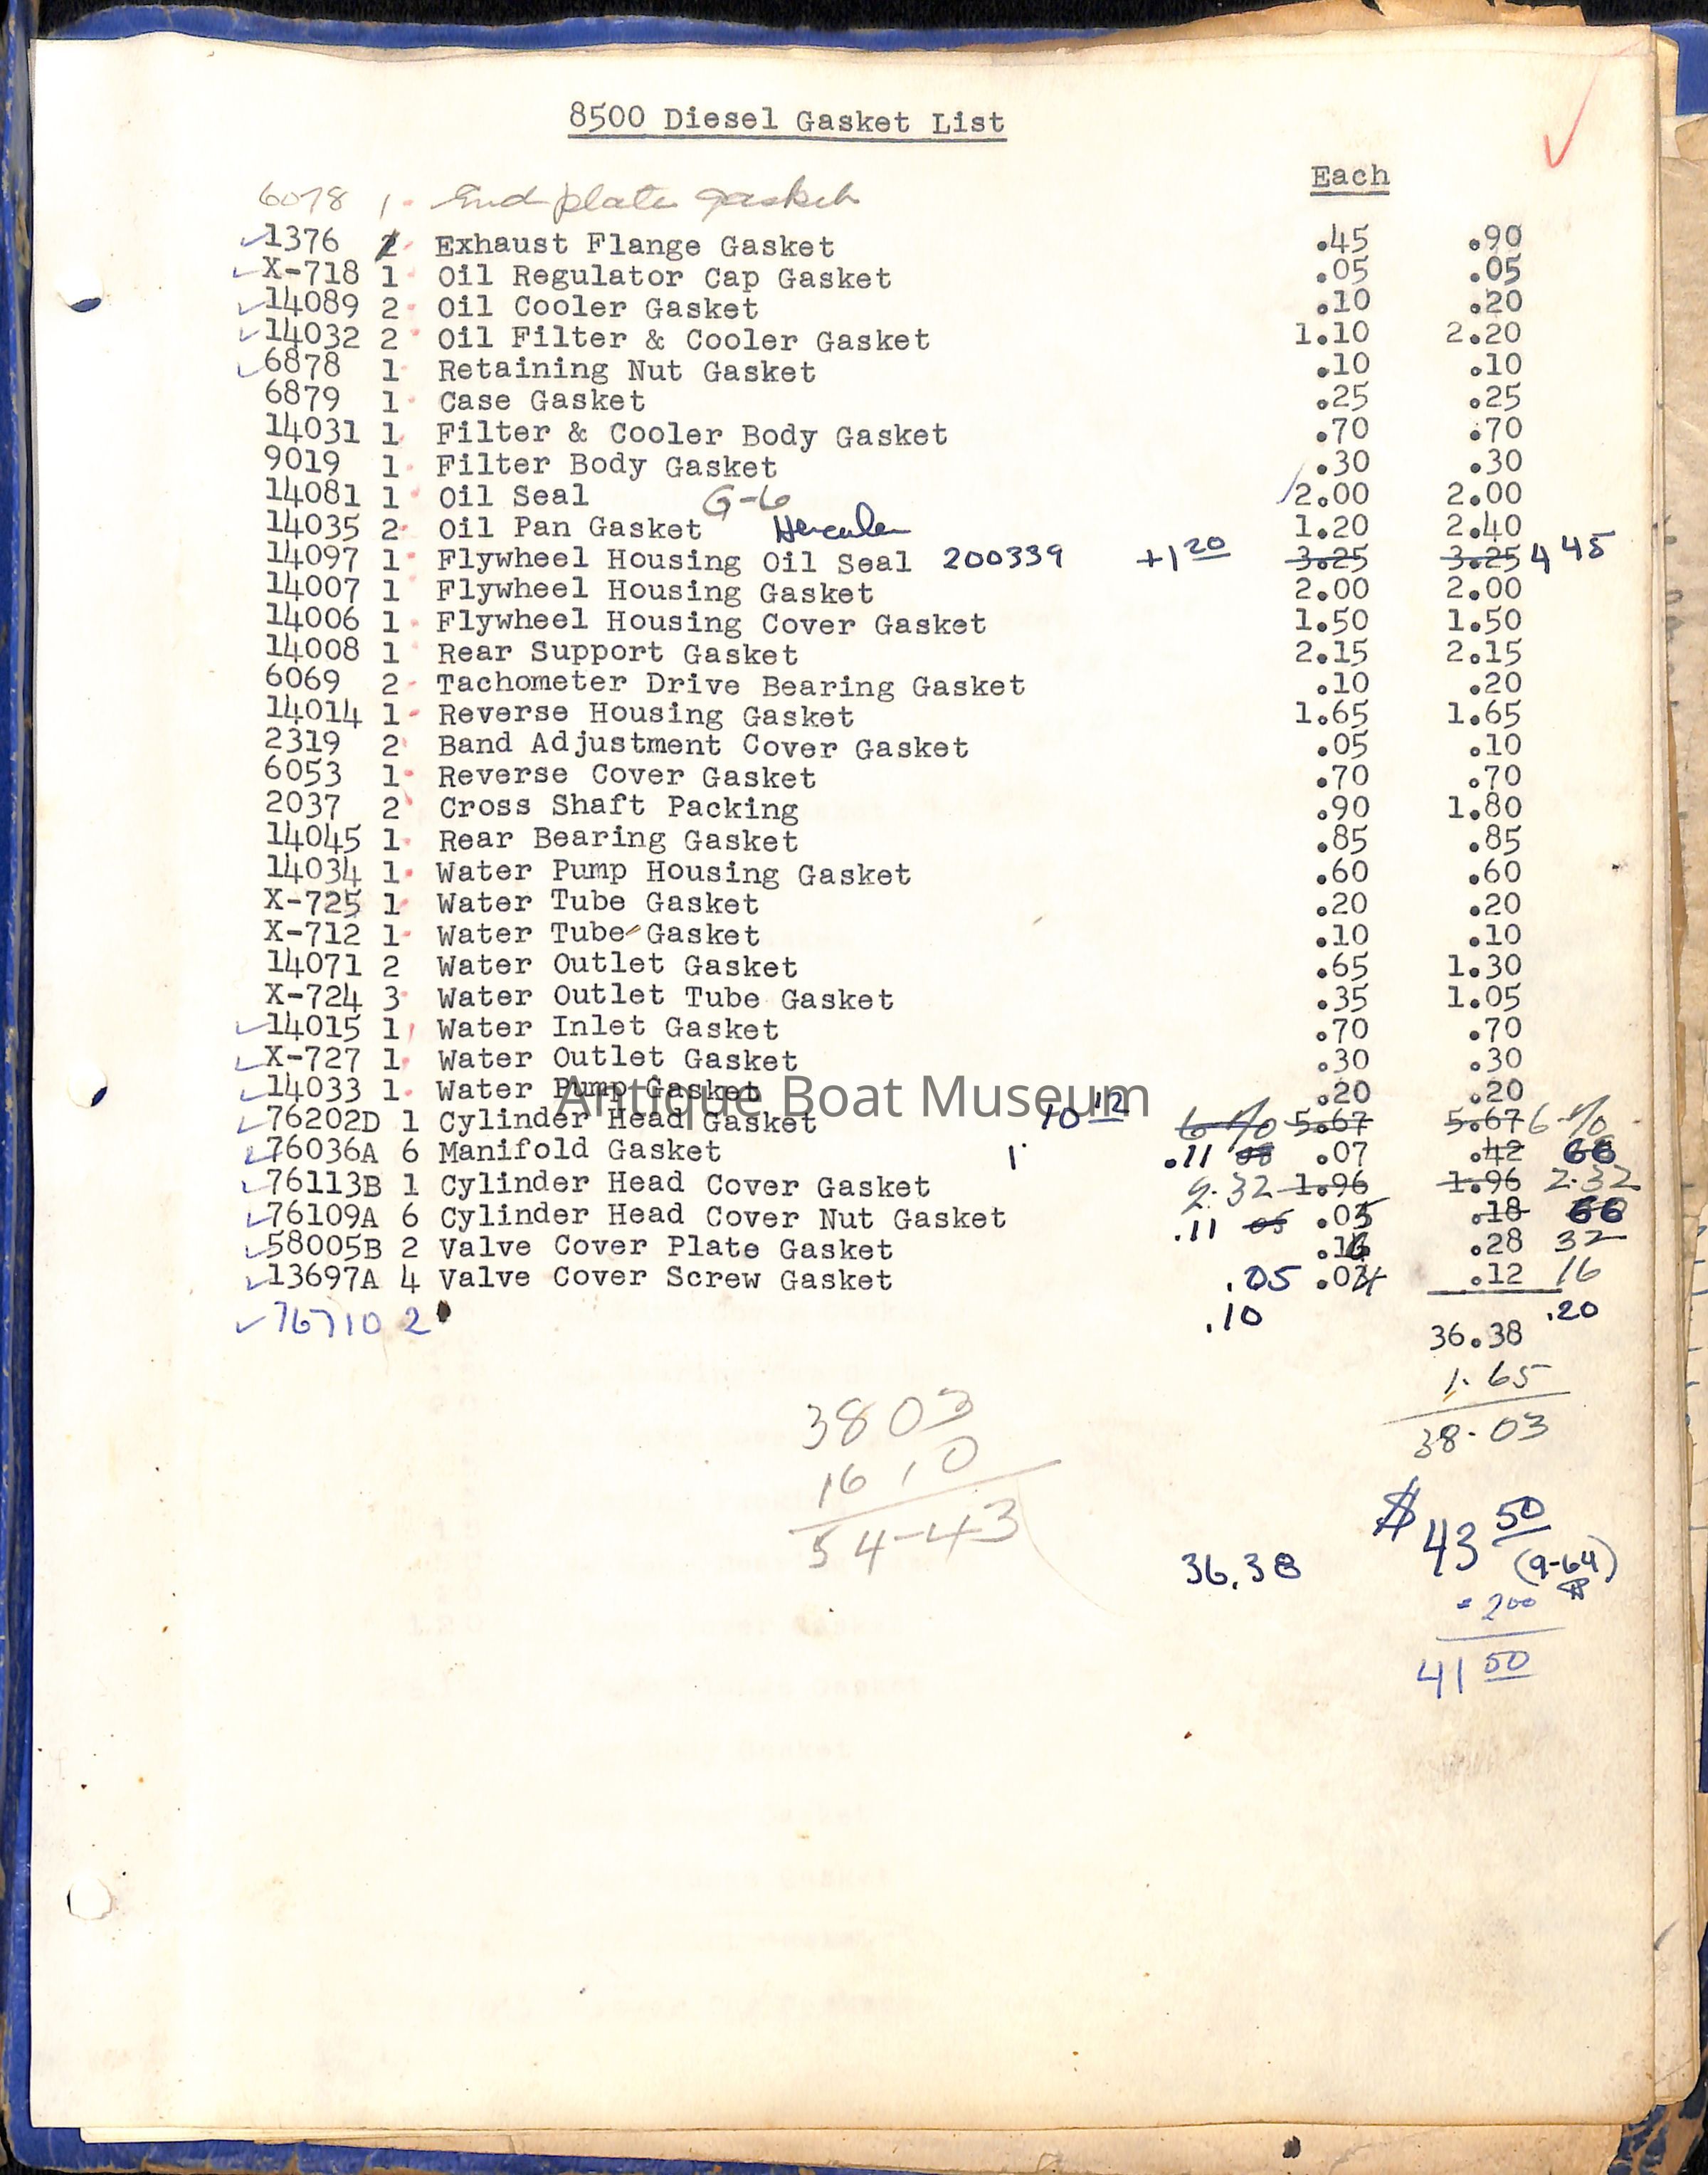 8500 Diesel Gasket List
Each
6078 1 End plate gasket
1376 2 Exhaust Flange Gasket .45 .90
X-718 1 Oil Regulator Cap Gasket .05 .05
14089 2 Oil Cooler Gasket .10 .20
14032 2 Oil Filter & Cooler Gasket 1.10 2.20
6878 1 Retaining Nut Gasket .10 .10
6879 1 Case Gasket .25 .25
14031 1 Filter & Cooler Body Gasket .70 .70
9019 1 Filter Body Gasket .30 .30
14081 1 Oil Seal G-6 2.00 2.00
14035 2 Oil Pan Gasket Hercules 1.20 2.40
14097 1 Flywheel Housing Oil Seal 200339 +1 20 3.25 3.25 4 45
14007 1 Flywheel Housing Gasket 2.00 2.00
14006 1 Flywheel Housing Cover Gasket 1.50 1.50
14008 1 Rear Support Gasket 2.15 2.15
6069 2 Tachometer Drive Bearing Gasket .10 .20
14014 1 Reverse Housing Gasket 1.65 1.65
2319 2 Band Adjustment Cover Gasket .05 .10
6053 1 Reverse Cover Gasket .70 .70
2037 2 Cross Shaft Packing .90 1.80
14045 1 Rear Bearing Gasket .85 .85
14034 1 Water Pump Housing Gasket .60 .60
X-725 1 Water Tube Gasket .20 .20
X-712 1 Water Tube Gasket .10 .10
14071 2 Water Outlet Gasket .65 1.30
X-724 3 Water Outlet Tube Gasket .35 1.05
14015 1 Water Inlet Gasket .70 .70
X-727 1 Water Outlet Gasket .30 .30
14033 1 Water Pump Gasket .20 .20
Antique Boat Museum
76202D 1 Cylinder Head Gasket 10 12 5.67 5.67
76036A 6 Manifold Gasket 1 .11 08 .07 .42 66
76113B 1 Cylinder Head Cover Gasket 2.32 1.96 1.96 2.32
76109A 6 Cylinder Head Cover Nut Gasket .11 05 .03 .18 66
58005B 2 Valve Cover Plate Gasket .16 .28 32
13697A 4 Valve Cover Screw Gasket .05 .04 .12 16
76710 2 .10 .20
36.38
1.65
38.03
3803
16 10
54-43
$43 50
(9-64)
36.38
- 2 00
41 50